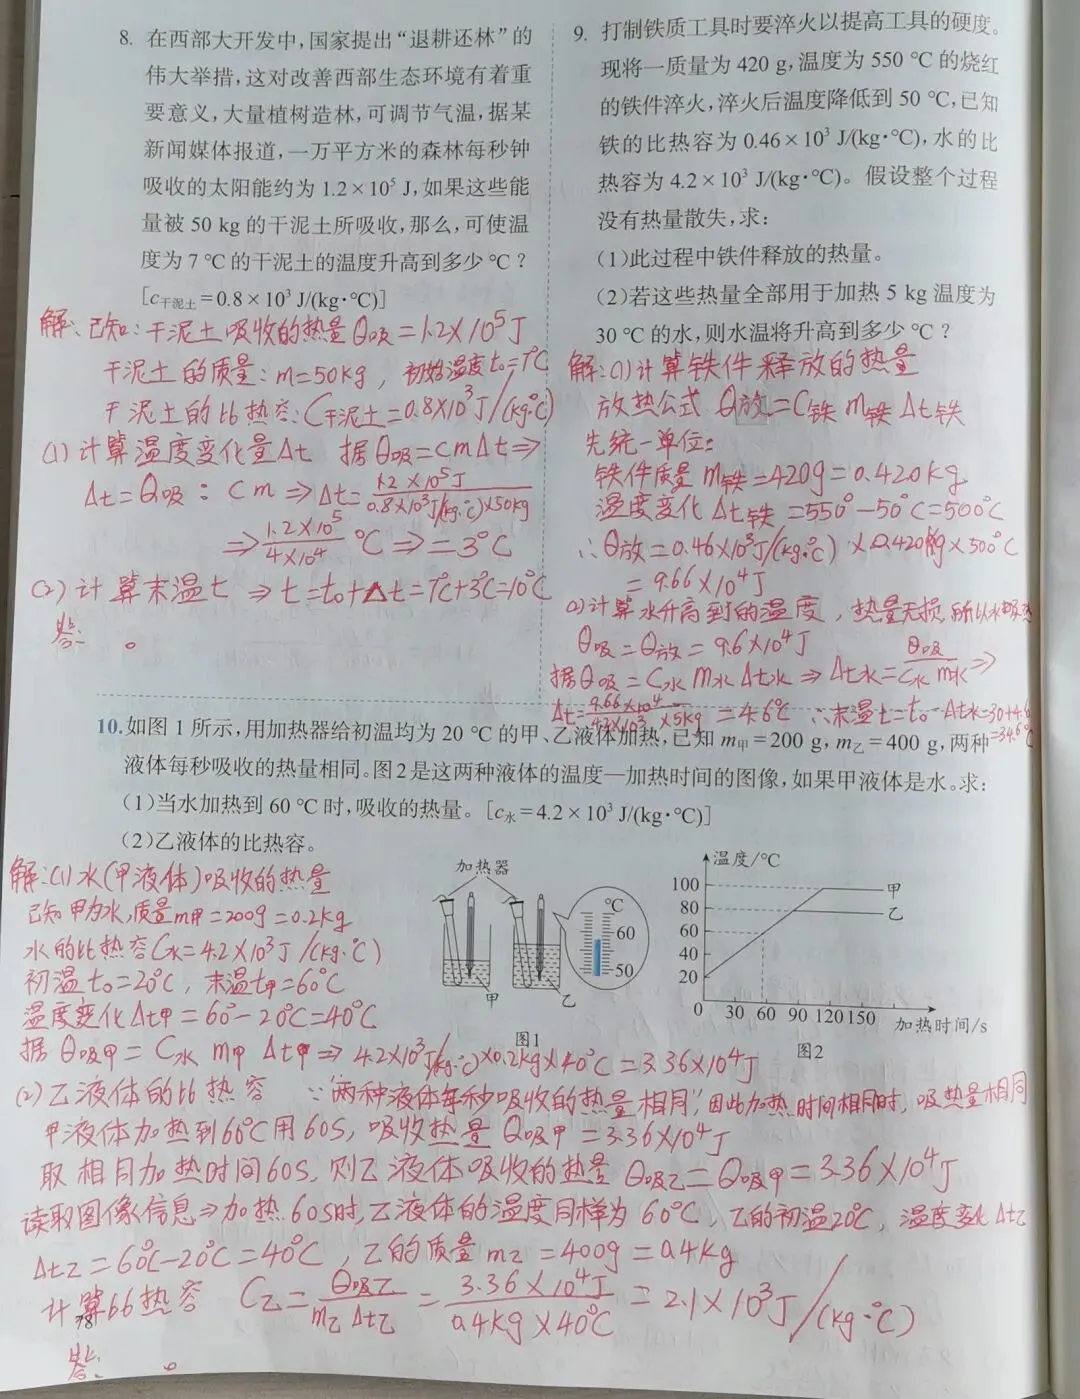 8. 在西部大开发中,国家提出“退耕还林”的
伟大举措,这对改善西部生态环境有着重
要意义,大量植树造林,可调节气温,据某
新闻媒体报道,一万平方米的森林每秒钟
吸收的太阳能约为 1.2×10⁵ J,如果这些能
量被 50 kg 的干泥土所吸收,那么,可使温
度为 7 ℃ 的干泥土的温度升高到多少 ℃?
[c干泥土=0.8×10³ J/(kg·℃)]
解:已知:干泥土吸收的热量Q吸=1.2×10⁵J
干泥土的质量:m=50kg,初始温度t₀=7℃
干泥土的比热容:C干泥土=0.8×10³J/(kg·℃)
(1)计算温度变化量Δt 据Q吸=cmΔt⇒
Δt=Q吸:cm⇒Δt=1.2×10⁵J/0.8×10³J/(kg·℃)×50kg
⇒1.2×10⁵/4×10⁴ ℃⇒=3℃
(2)计算末温t⇒t=t₀+Δt=7℃+3℃=10℃
答: 。
9. 打制铁质工具时要淬火以提高工具的硬度。
现将一质量为 420 g,温度为 550 ℃ 的烧红
的铁件淬火,淬火后温度降低到 50 ℃,已知
铁的比热容为 0.46×10³ J/(kg·℃),水的比
热容为 4.2×10³ J/(kg·℃)。假设整个过程
没有热量散失,求:
(1)此过程中铁件释放的热量。
(2)若这些热量全部用于加热 5 kg 温度为
30 ℃ 的水,则水温将升高到多少 ℃?
解:(1)计算铁件释放的热量
放热公式 Q放=C铁m铁Δt铁
先统一单位:
铁件质量m铁=420g=0.420kg
温度变化Δt铁=550°-50℃=500℃
∴Q放=0.46×10³J/(kg·℃)×0.420kg×500℃
=9.66×10⁴J
(2)计算水升高到的温度,热量无损,所以水吸热
Q吸=Q放=9.6×10⁴J
据Q吸=C水m水Δt水⇒Δt水=Q吸/C水m水⇒
Δt=9.66×10⁴/4.2×10³×5kg=4.6℃ ∴末温t=t₀-Δt水=30+4.6
=34.6℃
10. 如图 1 所示,用加热器给初温均为 20 ℃ 的甲、乙液体加热,已知 m甲=200 g,m乙=400 g,两种
液体每秒吸收的热量相同。图2是这两种液体的温度—加热时间的图像,如果甲液体是水。求:
(1)当水加热到 60 ℃ 时,吸收的热量。[c水=4.2×10³ J/(kg·℃)]
(2)乙液体的比热容。
解:(1)水(甲液体)吸收的热量
已知甲为水,质量m甲=200g=0.2kg
水的比热容C水=4.2×10³J/(kg·℃)
初温t₀=20℃,末温t甲=60℃
温度变化Δt甲=60°-20℃=40℃
据Q吸甲=C水m甲Δt甲⇒4.2×10³J/(kg·℃)×0.2kg×40℃=3.36×10⁴J
加热器
℃
60
50
甲
乙
图1
温度/℃
100
80
60
40
20
0
30 60 90 120 150
加热时间/s
甲
乙
图2
(2)乙液体的比热容 ∵“两种液体每秒吸收的热量相同”,因此加热时间相同时,吸热量相同
甲液体加热到60℃用60S,吸收热量Q吸甲=3.36×10⁴J
取相同加热时间60S,则乙液体吸收的热量Q吸乙=Q吸甲=3.36×10⁴J
读取图像信息⇒加热60S时,乙液体的温度同样为60℃,乙的初温20℃,温度变化Δt乙
Δt乙=60℃-20℃=40℃,乙的质量m乙=400g=0.4kg
计算比热容 C乙=Q吸乙/m乙Δt乙=3.36×10⁴J/0.4kg×40℃=2.1×10³J/(kg·℃)
78
答: 。